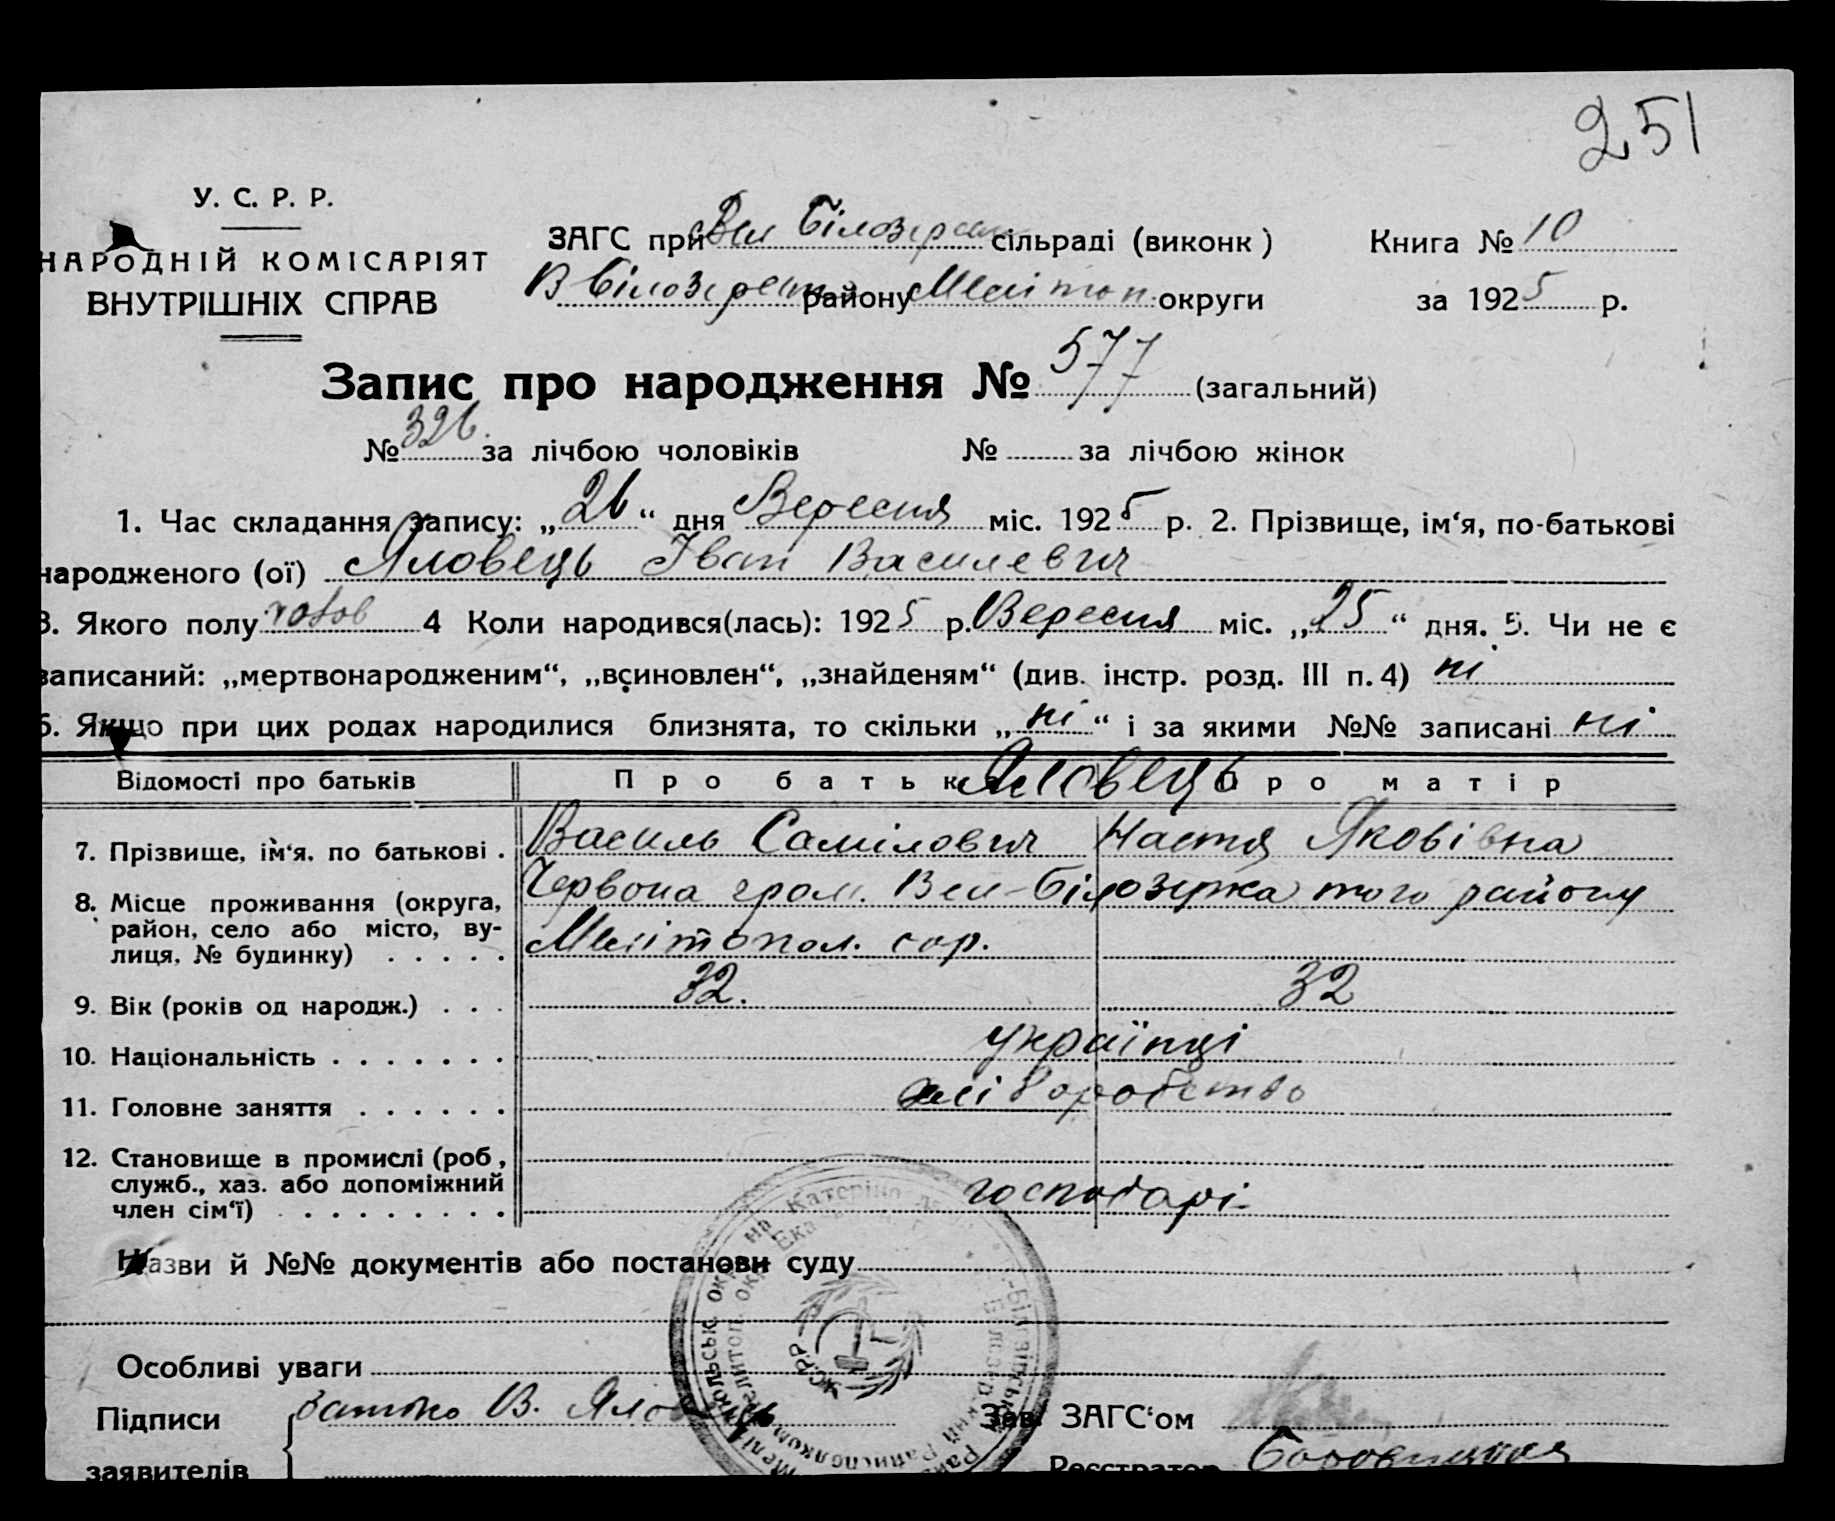 251
У. С. Р. Р.
НАРОДНІЙ КОМІСАРІЯТ
ВНУТРІШНІХ СПРАВ
ЗАГС при Вел Білозерск сільраді (виконк) Книга № 10
В Білозерск району Меліт оп. округи за 1925 р.
Запис про народження № 577 (загальний)
№ 326. за лічбою чоловіків № за лічбою жінок
1. Час складання запису: „26“ дня Вересня міс. 1925 р. 2. Прізвище, ім‘я, по-батькові
народженого (ої) Яловець Іван Василевич
3. Якого полу чолов 4 Коли народився(лась): 1925 р. Вересня міс. „25“ дня. 5. Чи не є
записаний: „мертвонародженим“, „всиновлен“, „знайденям“ (див. інстр. розд. III п. 4) ні
6. Якщо при цих родах народилися близнята, то скільки „ні“ і за якими №№ записані ні
Відомості про батьків Про батьк Яловець ро матір
7. Прізвище, ім‘я, по батькові . Василь Самілович Настя Яковівна
8. Місце проживання (округа, Червона гром. Вел-Білозірка того району
район, село або місто, ву-
лиця, № будинку) . . . . . Мелітопол. окр.
9. Вік (років од народж.) . . . 32. 32
10. Національність . . . . . . . українці
11. Головне заняття . . . . . . хліборобство
12. Становище в промислі (роб,
служб., хаз. або допоміжний
член сім‘ї) . . . . . . . . . господарі
Назви й №№ документів або постанови суду
Особливі уваги
Підписи батько В. Яловець Зав. ЗАГС‘ом
заявителів Реєстратор